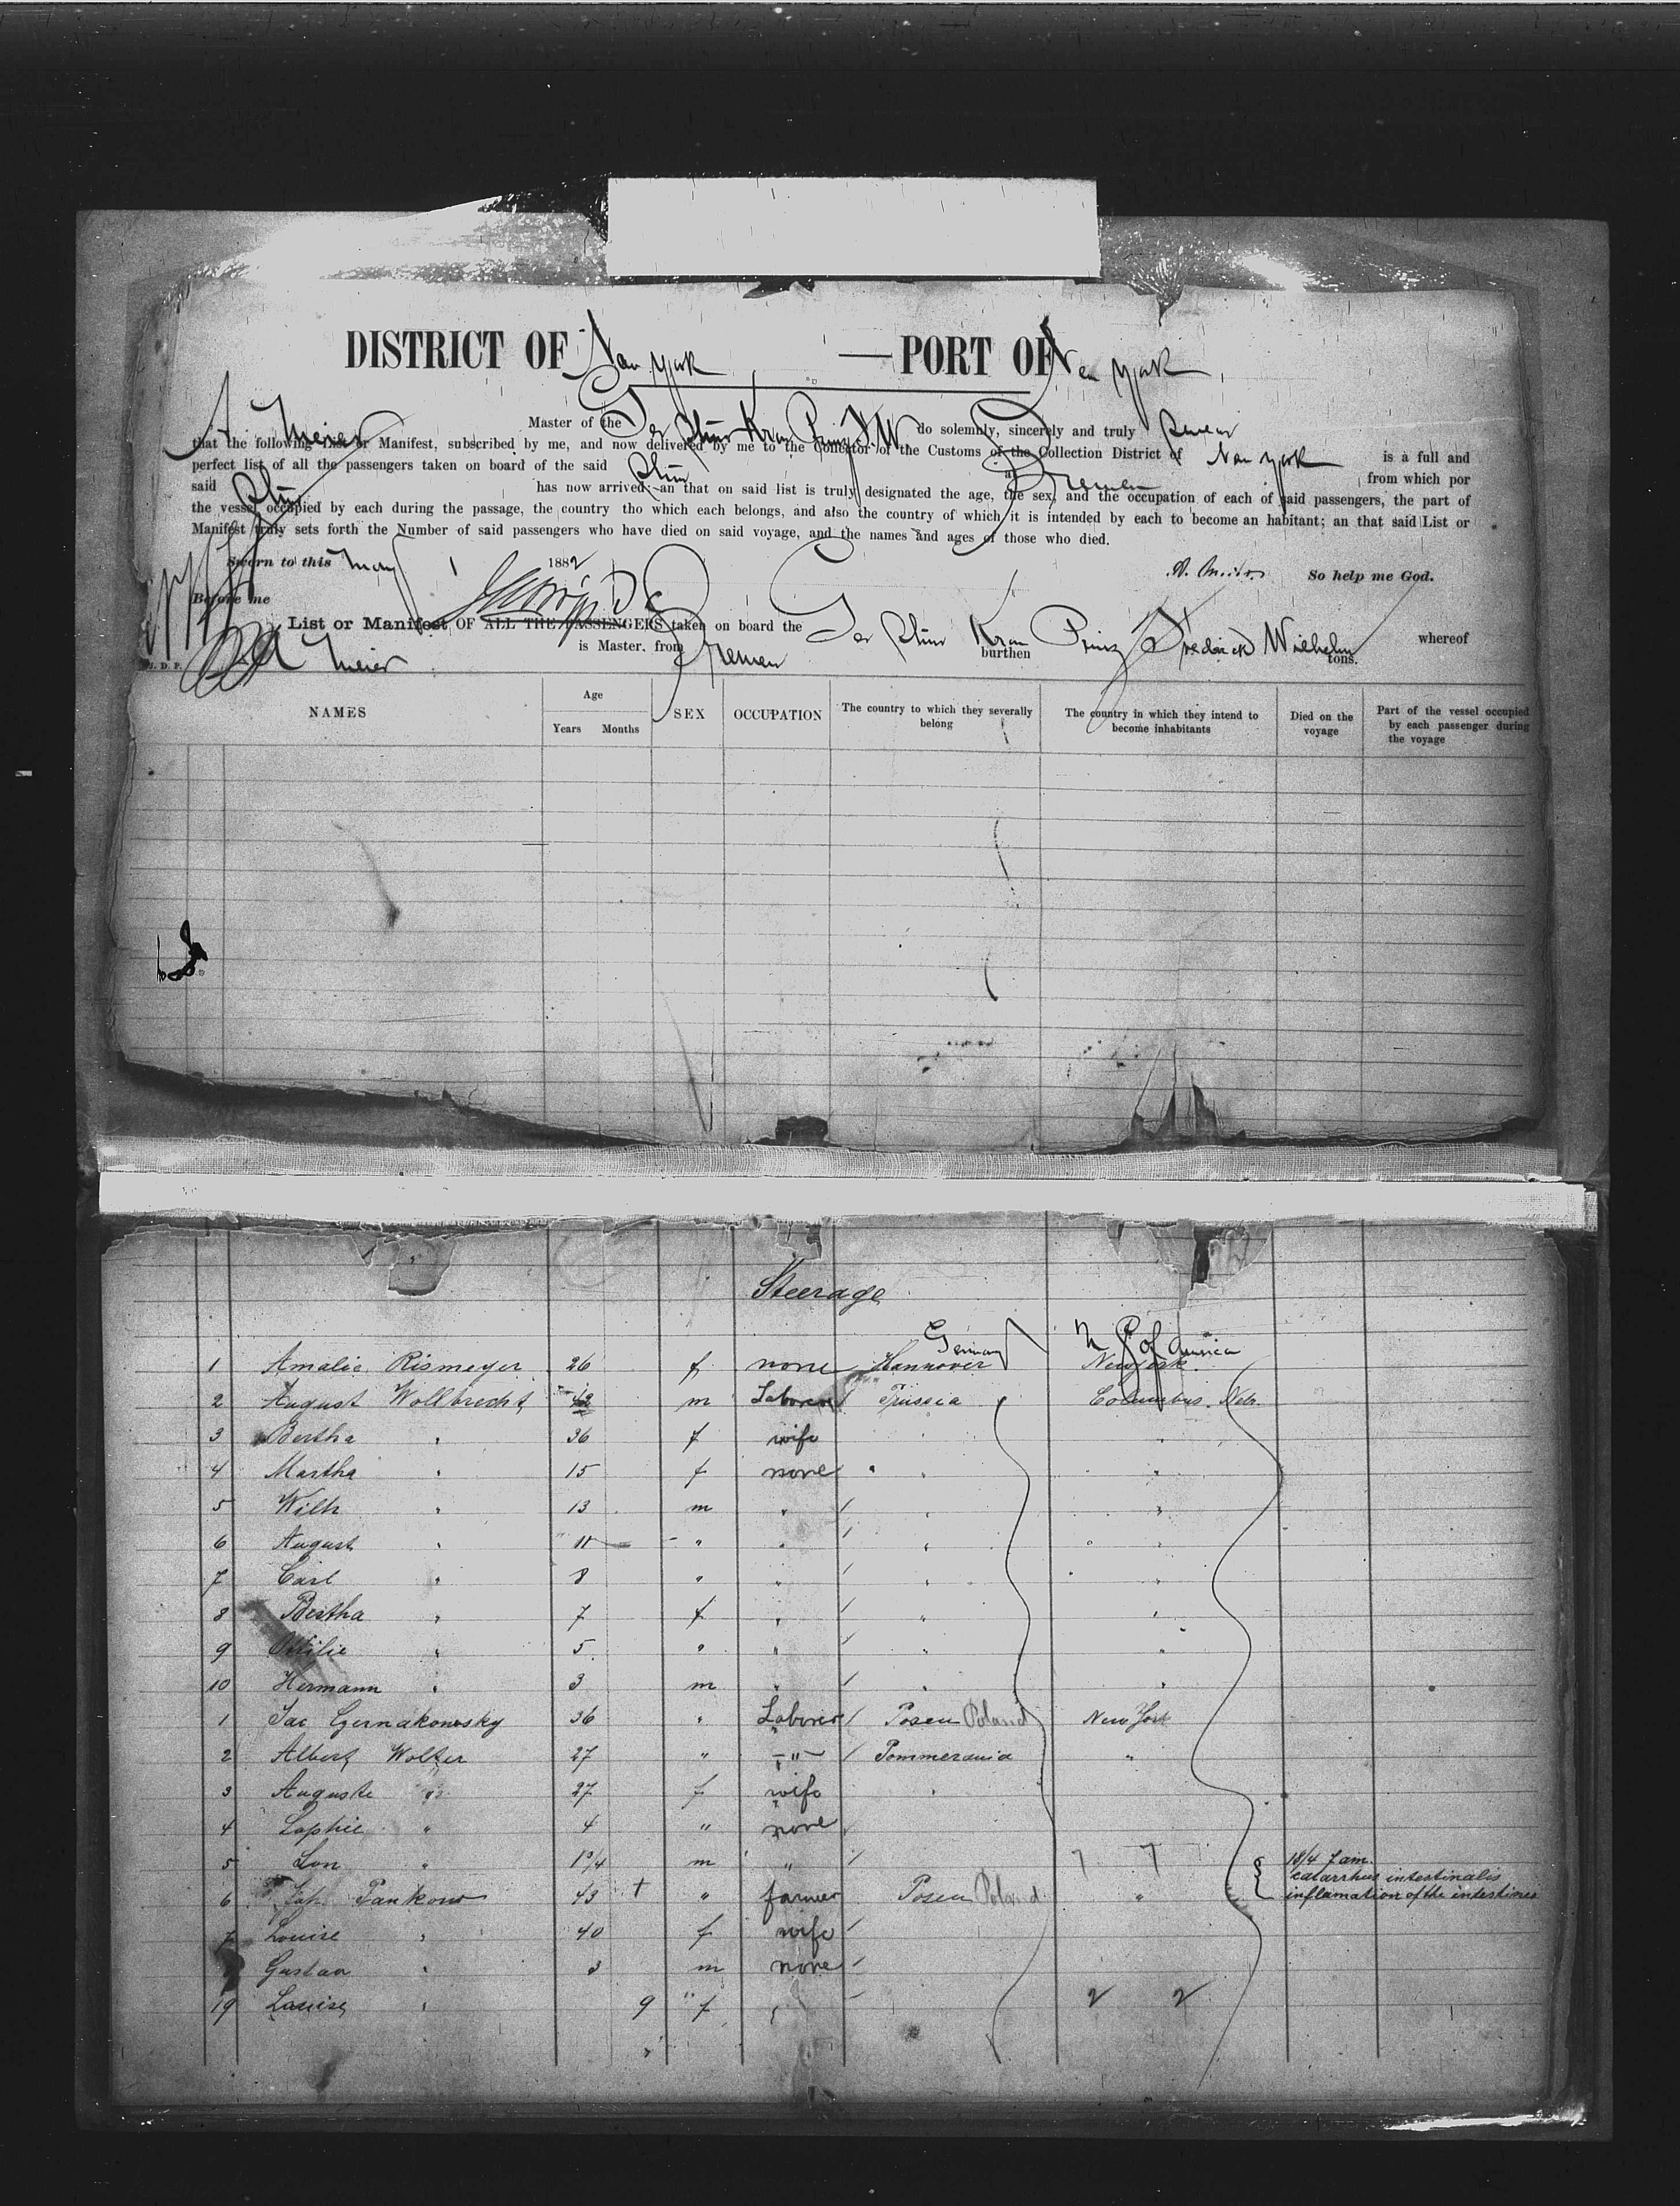 DISTRICT OF New York — PORT OF New York
A Meier Master of the Ger Stmr Kron Prinz F. W. do solemnly, sincerely and truly Swear
that the following List or Manifest, subscribed by me, and now delivered by me to the Collector of the Customs of the Collection District of New York is a full and
perfect list of all the passengers taken on board of the said Stmr at Bremen from which por
said Stmr has now arrived an that on said list is truly designated the age, the sex, and the occupation of each of said passengers, the part of
the vessel occupied by each during the passage, the country tho which each belongs, and also the country of which it is intended by each to become an habitant; an that said List or
Manifest truly sets forth the Number of said passengers who have died on said voyage, and the names and ages of those who died.
Sworn to this May 1 1882 A. Meier So help me God.
Before me
List or Manifest OF ALL THE PASSENGERS taken on board the Ger Stmr Kron Prinz Frederick Wilhelm whereof
J. D. P. A Meier is Master, from Bremen burthen tons.
NAMES Age Years Months SEX OCCUPATION The country to which they severally belong The country in which they intend to become inhabitants Died on the voyage Part of the vessel occupied by each passenger during the voyage
Steerage
Germany U S of America
1 Amalie Rismeyer 26 f none Hannover New York.
2 August Wollbrecht 42 m Laborer Prussia Columbus. Neb.
3 Bertha " 36 f wife " "
4 Martha " 15 f none " "
5 Wilh " 13 m " " "
6 August " 11 " " " "
7 Carl " 8 " " " "
8 Bertha " 7 f " " "
9 Ottilie " 5 " " " "
10 Hermann " 3 m " " "
1 Jac Czernakowsky 36 " Laborer Posen Poland New York
2 Albert Wolter 27 " " Pommerania "
3 Auguste " 27 f wife "
4 Sophie " 4 " none
5 " 1 3/4 m "
6 Joh. Pankow 43 † " farmer Posen Poland " 18/4 7 am. catarrhus intestinalis inflamation of the intestines
7 Louise " 40 f wife
Gustav " 3 m none
19 Louise " 9 " f "